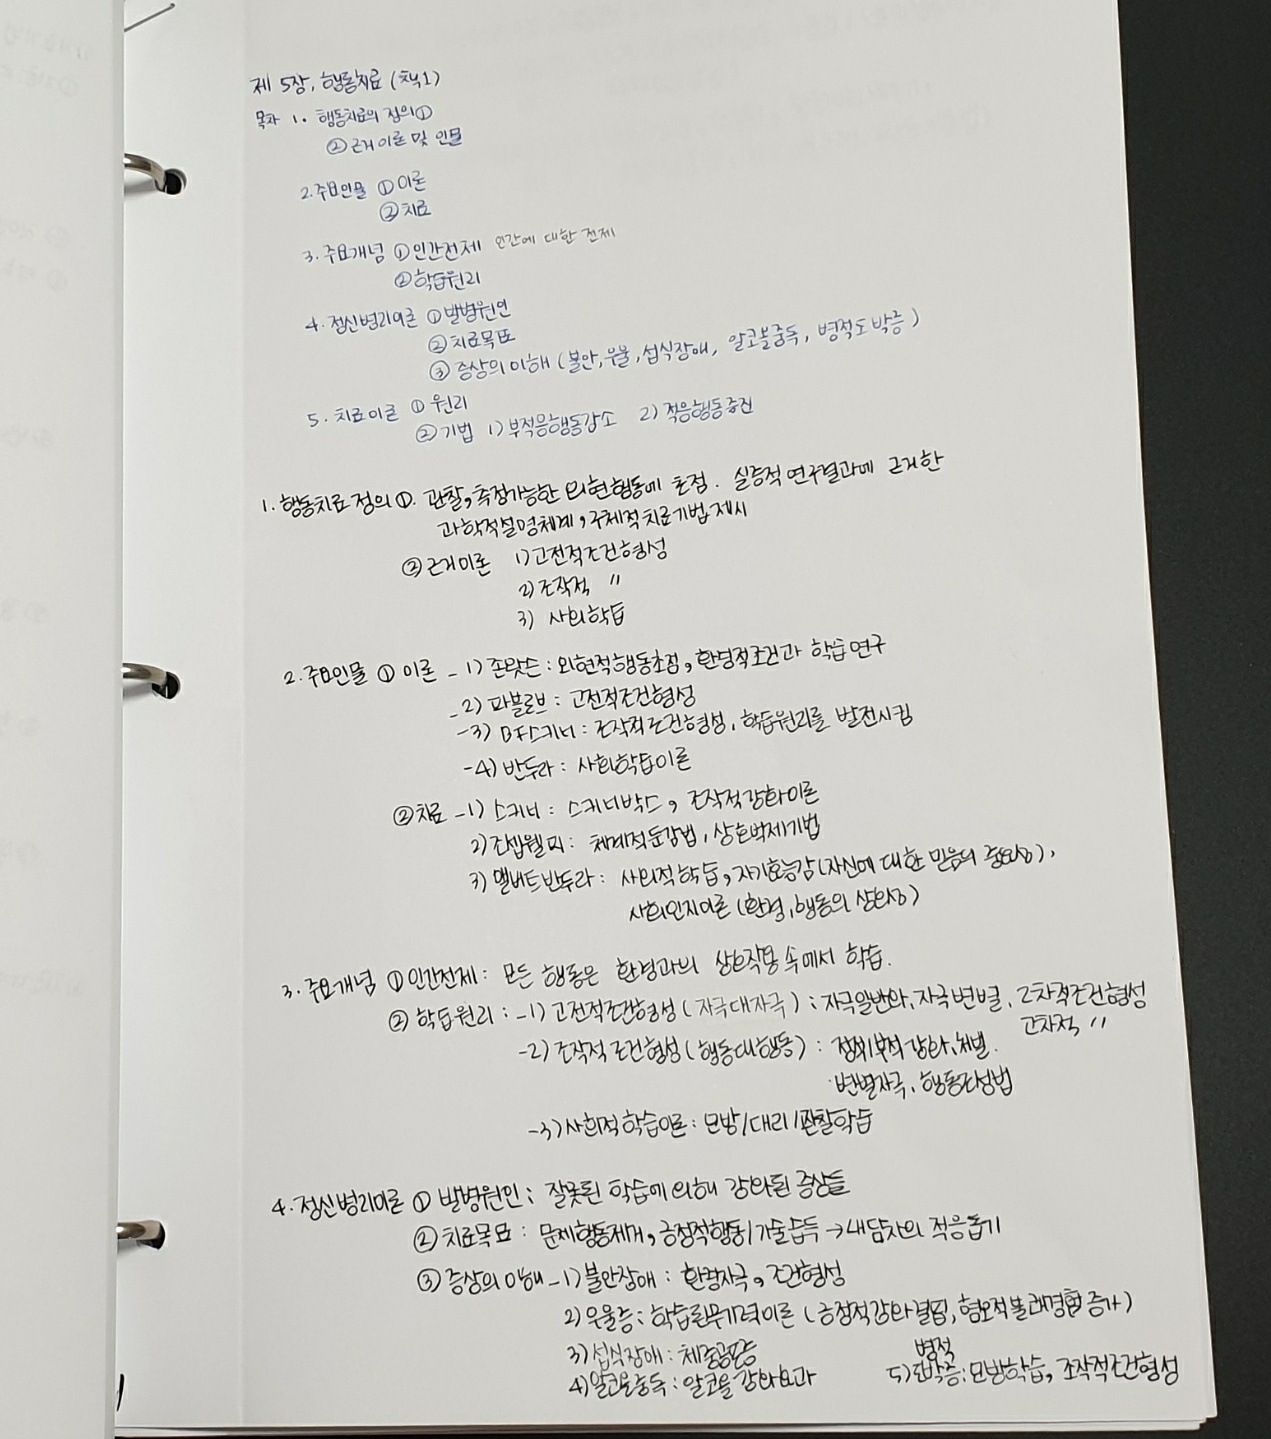 제 5장. 행동치료 (책1)
목차 1. 행동치료의 정의①
② 근거이론 및 인물
2. 주요인물 ① 이론
② 치료
3. 주요개념 ① 인간전제 인간에 대한 전제
② 학습원리
4. 정신병리이론 ① 발병원인
② 치료목표
③ 증상의 이해 (불안, 우울, 섭식장애, 알코올중독, 병적도박증)
5. 치료이론 ① 원리
② 기법 1) 부적응행동감소 2) 적응행동증진
1. 행동치료 정의 ①. 관찰, 측정가능한 외현행동에 초점. 실증적 연구결과에 근거한
과학적설명체계, 구체적치료기법제시
② 근거이론 1) 고전적조건형성
2) 조작적 〃
3) 사회학습
2. 주요인물 ① 이론 - 1) 존왓슨 : 외현적행동초점, 환경적조건과 학습연구
- 2) 파블로브 : 고전적조건형성
- 3) BF스키너 : 조작적조건형성, 학습원리를 발전시킴
- 4) 반두라 : 사회학습이론
② 치료 - 1) 스키너 : 스키너박스, 조작적강화이론
2) 조셉웰피 : 체계적둔감법, 상호억제기법
3) 앨버트반두라 : 사회적학습, 자기효능감(자신에 대한 믿음의 중요성),
사회인지이론 (환경, 행동의 상호성)
3. 주요개념 ① 인간전제 : 모든 행동은 환경과의 상호작용 속에서 학습.
② 학습원리 : - 1) 고전적조건형성 (자극대자극) : 자극일반화, 자극변별, 2차적조건형성
고차적 〃
- 2) 조작적 조건형성 (행동대행동) : 정적/부적 강화, 처벌.
변별자극, 행동조성법
- 3) 사회적학습이론 : 모방/대리/관찰학습
4. 정신병리이론 ① 발병원인 : 잘못된 학습에 의해 강화된 증상들
② 치료목표 : 문제행동제거, 긍정적행동/기술습득 → 내담자의 적응돕기
③ 증상의 이해 - 1) 불안장애 : 환경자극, 조건형성
2) 우울증 : 학습된무기력이론 (긍정적강화결핍, 혐오적불쾌경험 증가)
3) 섭식장애 : 체중공포증
병적
4) 알코올중독 : 알코올 강화효과 5) 도박증 : 모방학습, 조작적조건형성